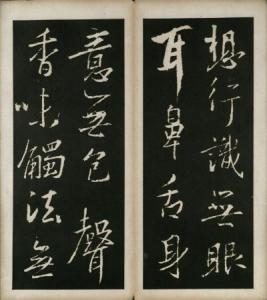 想行識無眼
耳鼻舌身
意无色聲
香味觸法無